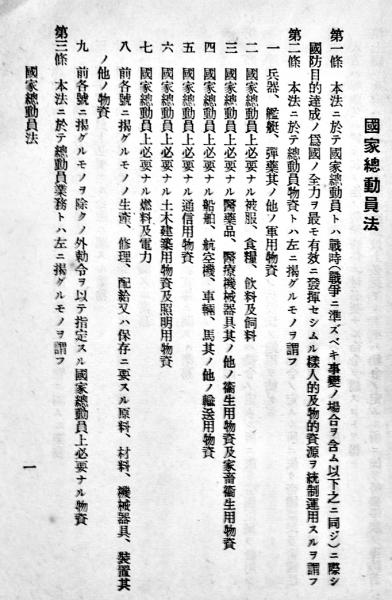 國家總動員法
第一條 本法ニ於テ國家總動員トハ戰時(戰爭ニ準ズベキ事變ノ場合ヲ含ム以下之ニ同ジ)ニ際シ
國防目的達成ノ爲國ノ全力ヲ最モ有效ニ發揮セシムル樣人的及物的資源ヲ統制運用スルヲ謂フ
第二條 本法ニ於テ總動員物資トハ左ニ掲グルモノヲ謂フ
一 兵器、艦艇、彈藥其ノ他ノ軍用物資
二 國家總動員上必要ナル被服、食糧、飲料及飼料
三 國家總動員上必要ナル醫藥品、醫療機械器具其ノ他ノ衞生用物資及家畜衞生用物資
四 國家總動員上必要ナル船舶、航空機、車輛、馬其ノ他ノ輸送用物資
五 國家總動員上必要ナル通信用物資
六 國家總動員上必要ナル土木建築用物資及照明用物資
七 國家總動員上必要ナル燃料及電力
八 前各號ニ掲グルモノノ生産、修理、配給又ハ保存ニ要スル原料、材料、機械器具、裝置其
ノ他ノ物資
九 前各號ニ掲グルモノヲ除クノ外勅令ヲ以テ指定スル國家總動員上必要ナル物資
第三條 本法ニ於テ總動員業務トハ左ニ掲グルモノヲ謂フ
國家總動員法
一